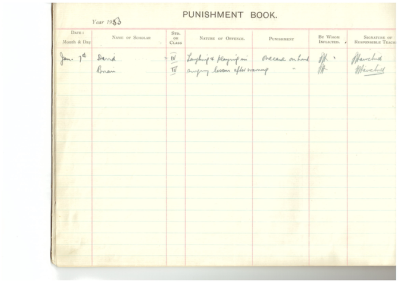 PUNISHMENT BOOK.
Year 1953
DATE: Month & Day NAME OF SCHOLAR STD. OR CLASS NATURE OF OFFENCE. PUNISHMENT BY WHOM INFLICTED. SIGNATURE OF RESPONSIBLE TEACHER
Jan. David IV Laughing & playing in on hand H.
Brian IV singing lesson after warning " H.